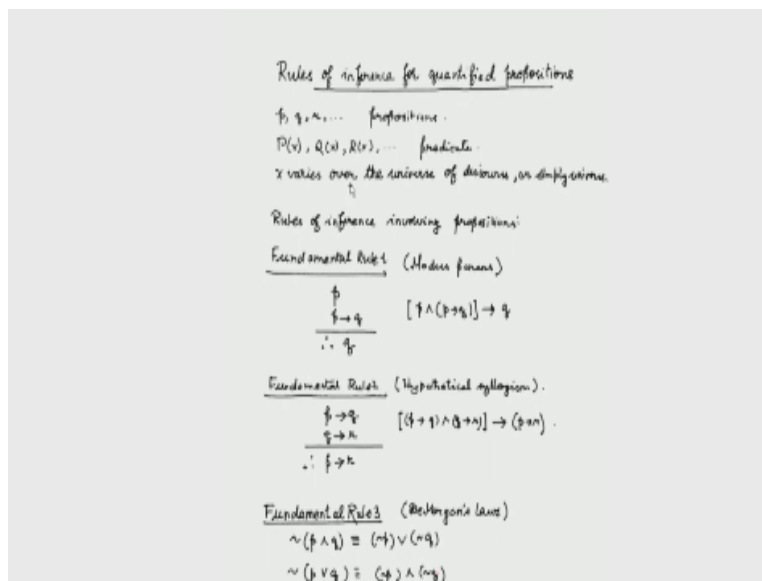 Rules of inference for quantified propositions
p, q, r, ... propositions.
P(x), Q(x), R(x), ... predicate.
x varies over the universe of discourse, or simply universe.
Rules of inference involving propositions:
Fundamental Rule 1 (Modus ponens)
p
p → q [p ∧ (p → q)] → q
∴ q
Fundamental Rule 2 (Hypothetical syllogism).
p → q [(p → q) ∧ (q → r)] → (p → r).
q → r
∴ p → r
Fundamental Rule 3 (De Morgan's laws)
~(p ∧ q) ≡ (~p) ∨ (~q)
~(p ∨ q) ≡ (~p) ∧ (~q)